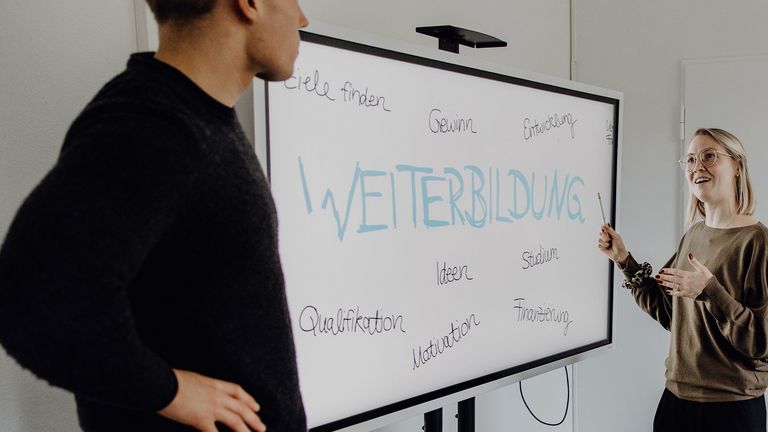 Ziele finden
Gewinn
Entwicklung
WEITERBILDUNG
Ideen
Studium
Qualifikation
Motivation
Finanzierung